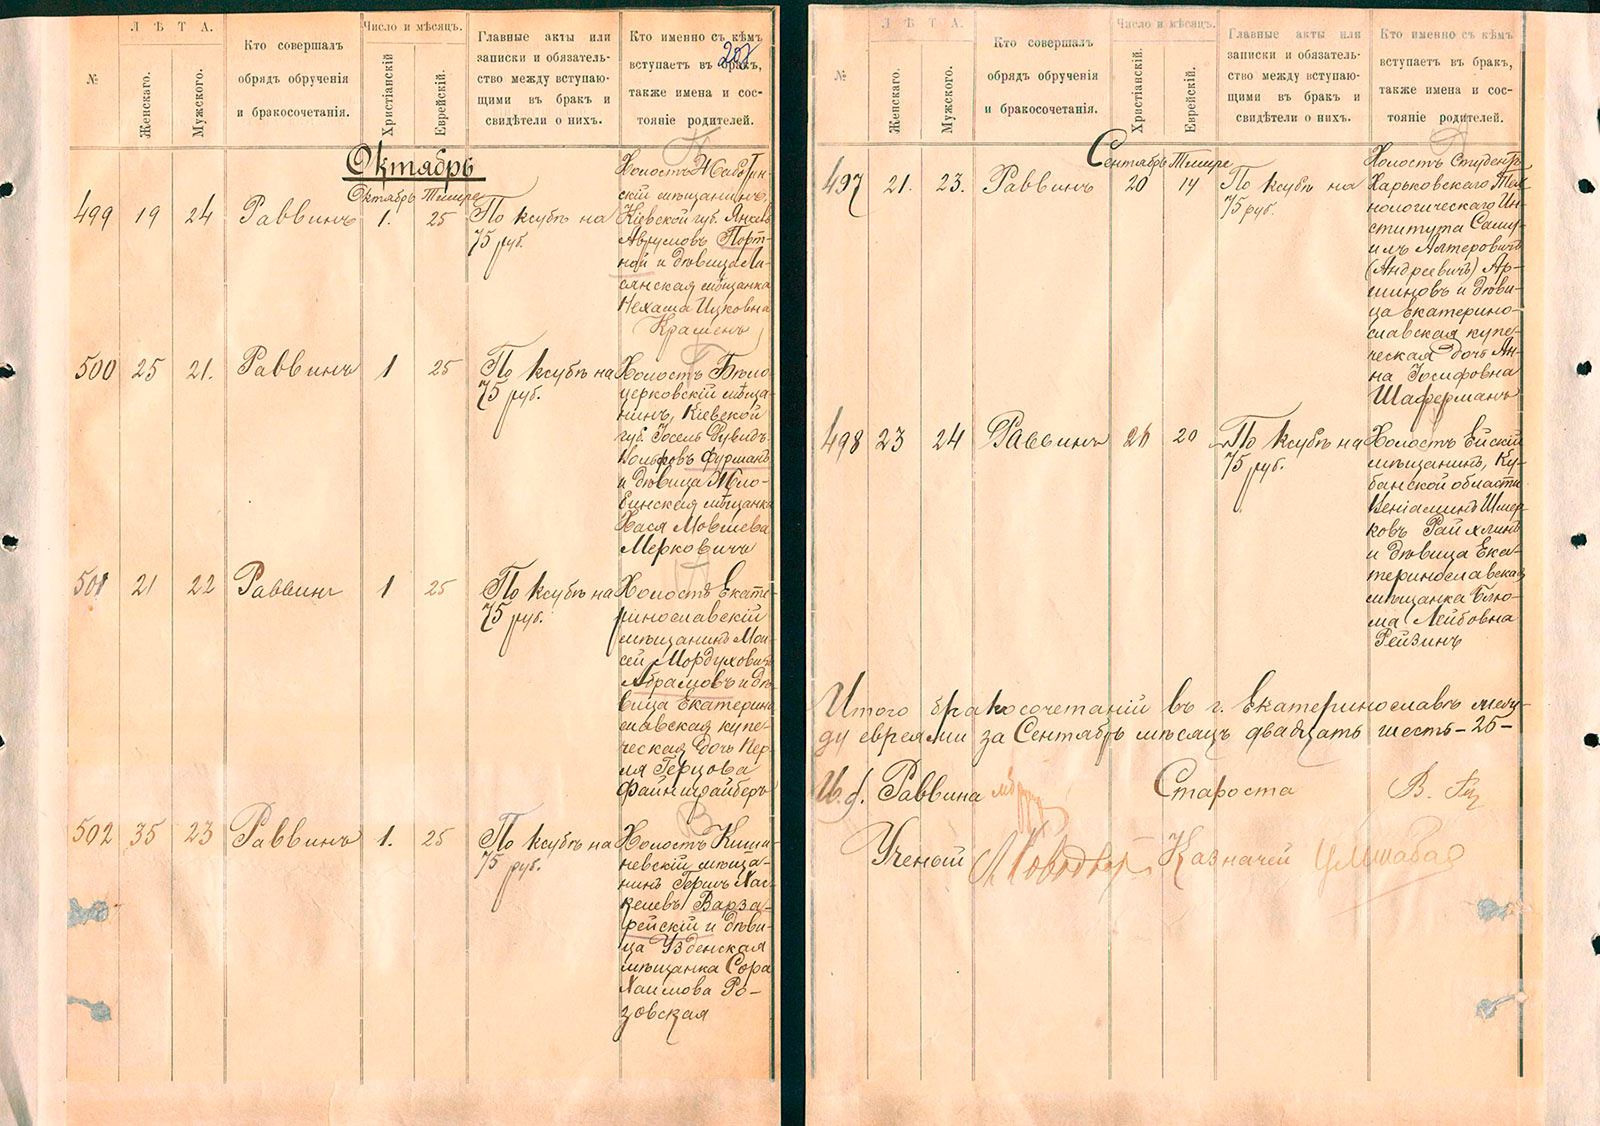 Л Ѣ Т А.
Число и мѣсяцъ.
№
Женскаго.
Мужского.
Кто совершалъ
обрядъ обрученія
и бракосочетанія.
Христіанскій
Еврейскій.
Главные акты или
записки и обязатель-
ство между вступаю-
щими въ бракъ и
свидѣтели о нихъ.
Кто именно съ кѣмъ
вступаетъ въ бракъ,
также имена и сос-
тояніе родителей.
Октябрь
Октябрь Тишре
499 19 24 Раввинъ 1. 25 По ксубѣ на
75 руб.
Холостъ
скій мѣщанинъ,
Кіевской губ. Янкель
Аврумовъ Порт-
ной и дѣвица
сянская мѣщанка
Нехама Ицковна
Крамень
500 25 21. Раввинъ 1 25 По ксубѣ на
75 руб.
Холостъ Бѣло-
церковскій мѣща-
нинъ, Кіевской
губ. Іосель Дувидъ-
Вольфовъ Фурманъ
и дѣвица Жло-
бинская мѣщанка
Хася Мовшева
Мерковичъ
501 21 22 Раввинъ 1 25 По ксубѣ на
75 руб.
Холостъ Екате-
ринославскій
мѣщанинъ Мои-
сей Мордуховичъ
Абрамовъ и дѣ-
вица Екатерино-
славская купе-
ческая дочь Пер-
ля Герцова
Файнштейберъ
502 35 23 Раввинъ 1. 25 По ксубѣ на
75 руб.
Холостъ Киши-
невскій мѣща-
нинъ Гершъ Хас-
келевъ Варза-
рейскій и дѣви-
ца Узденская
мѣщанка Сора
Хаимова Ро-
зовская
Л Ѣ Т А.
Число и мѣсяцъ.
№
Женскаго.
Мужского.
Кто совершалъ
обрядъ обрученія
и бракосочетанія.
Христіанскій
Еврейскій.
Главные акты или
записки и обязатель-
ство между вступаю-
щими въ бракъ и
свидѣтели о нихъ.
Кто именно съ кѣмъ
вступаетъ въ бракъ,
также имена и сос-
тояніе родителей.
Сентябрь Тишре
497 21. 23. Раввинъ 20 14 По ксубѣ на
75 руб.
Холостъ студентъ
Харьковскаго Тех-
нологическаго Ин-
ститута Саму-
илъ Алтеровичъ
(Андреевичъ) Ар-
шиновъ и дѣви-
ца Екатерино-
славская купе-
ческая дочь Ан-
на Іосифовна
Шаферманъ
498 23 24 Раввинъ 26 20 По ксубѣ на
75 руб.
Холостъ Ейскій
мѣщанинъ, Ку-
банской области
Веніаминъ Шмер-
ковъ Райхлинъ
и дѣвица Ека-
теринославская
мѣщанка Блю-
ма Лейбовна
Рейзинъ
Итого бракосочетаній въ г. Екатеринославѣ меж-
ду евреями за Сентябрь мѣсяцъ двадцать шесть - 26 -
И. д. Раввина
Староста
Ученый
Казначей